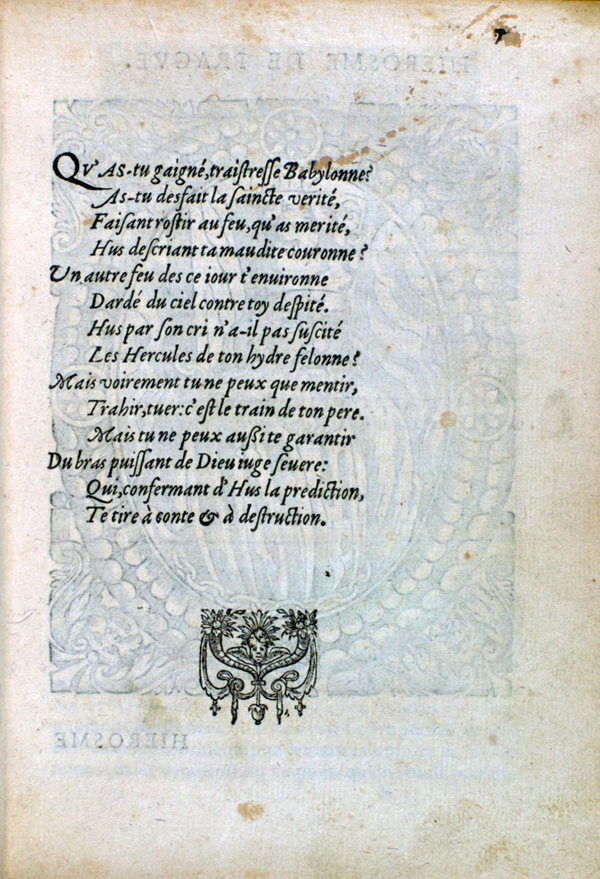 HIEROSME DE PRAGVE.
QV'AS-tu gaigné, traistresse Babylonne?
As-tu desfait la saincte verité,
Faisant rostir au feu, qu'as merité,
Hus descriant ta maudite couronne?
Vn autre feu des ce iour t'enuironne
Dardé du ciel contre toy despité.
Hus par son cri n'a-il pas suscité
Les Hercules de ton hydre felonne?
Mais voirement tu ne peux que mentir,
Trahir, tuer: c'est le train de ton pere.
Mais tu ne peux aussi te garantir
Du bras puissant de Dieu iuge seuere:
Qui, confermant d'Hus la prediction,
Te tire à conte & à destruction.
HIEROSME